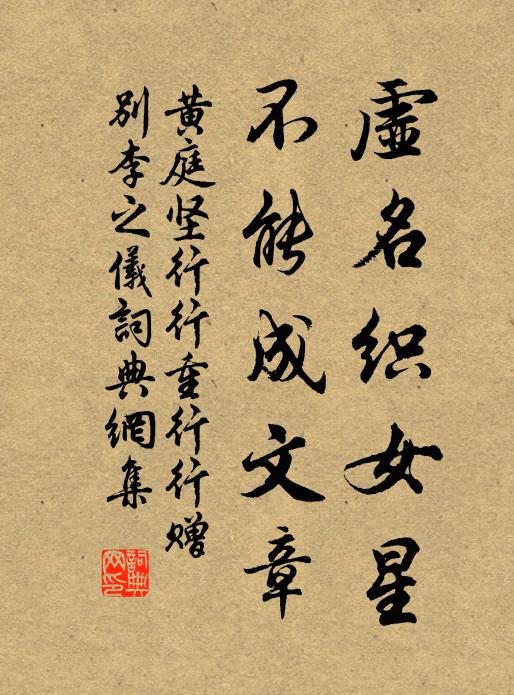 虛名织女星
不能成文章
黄庭坚行行重行行赠
别李之儀詞典網集
詞典网印